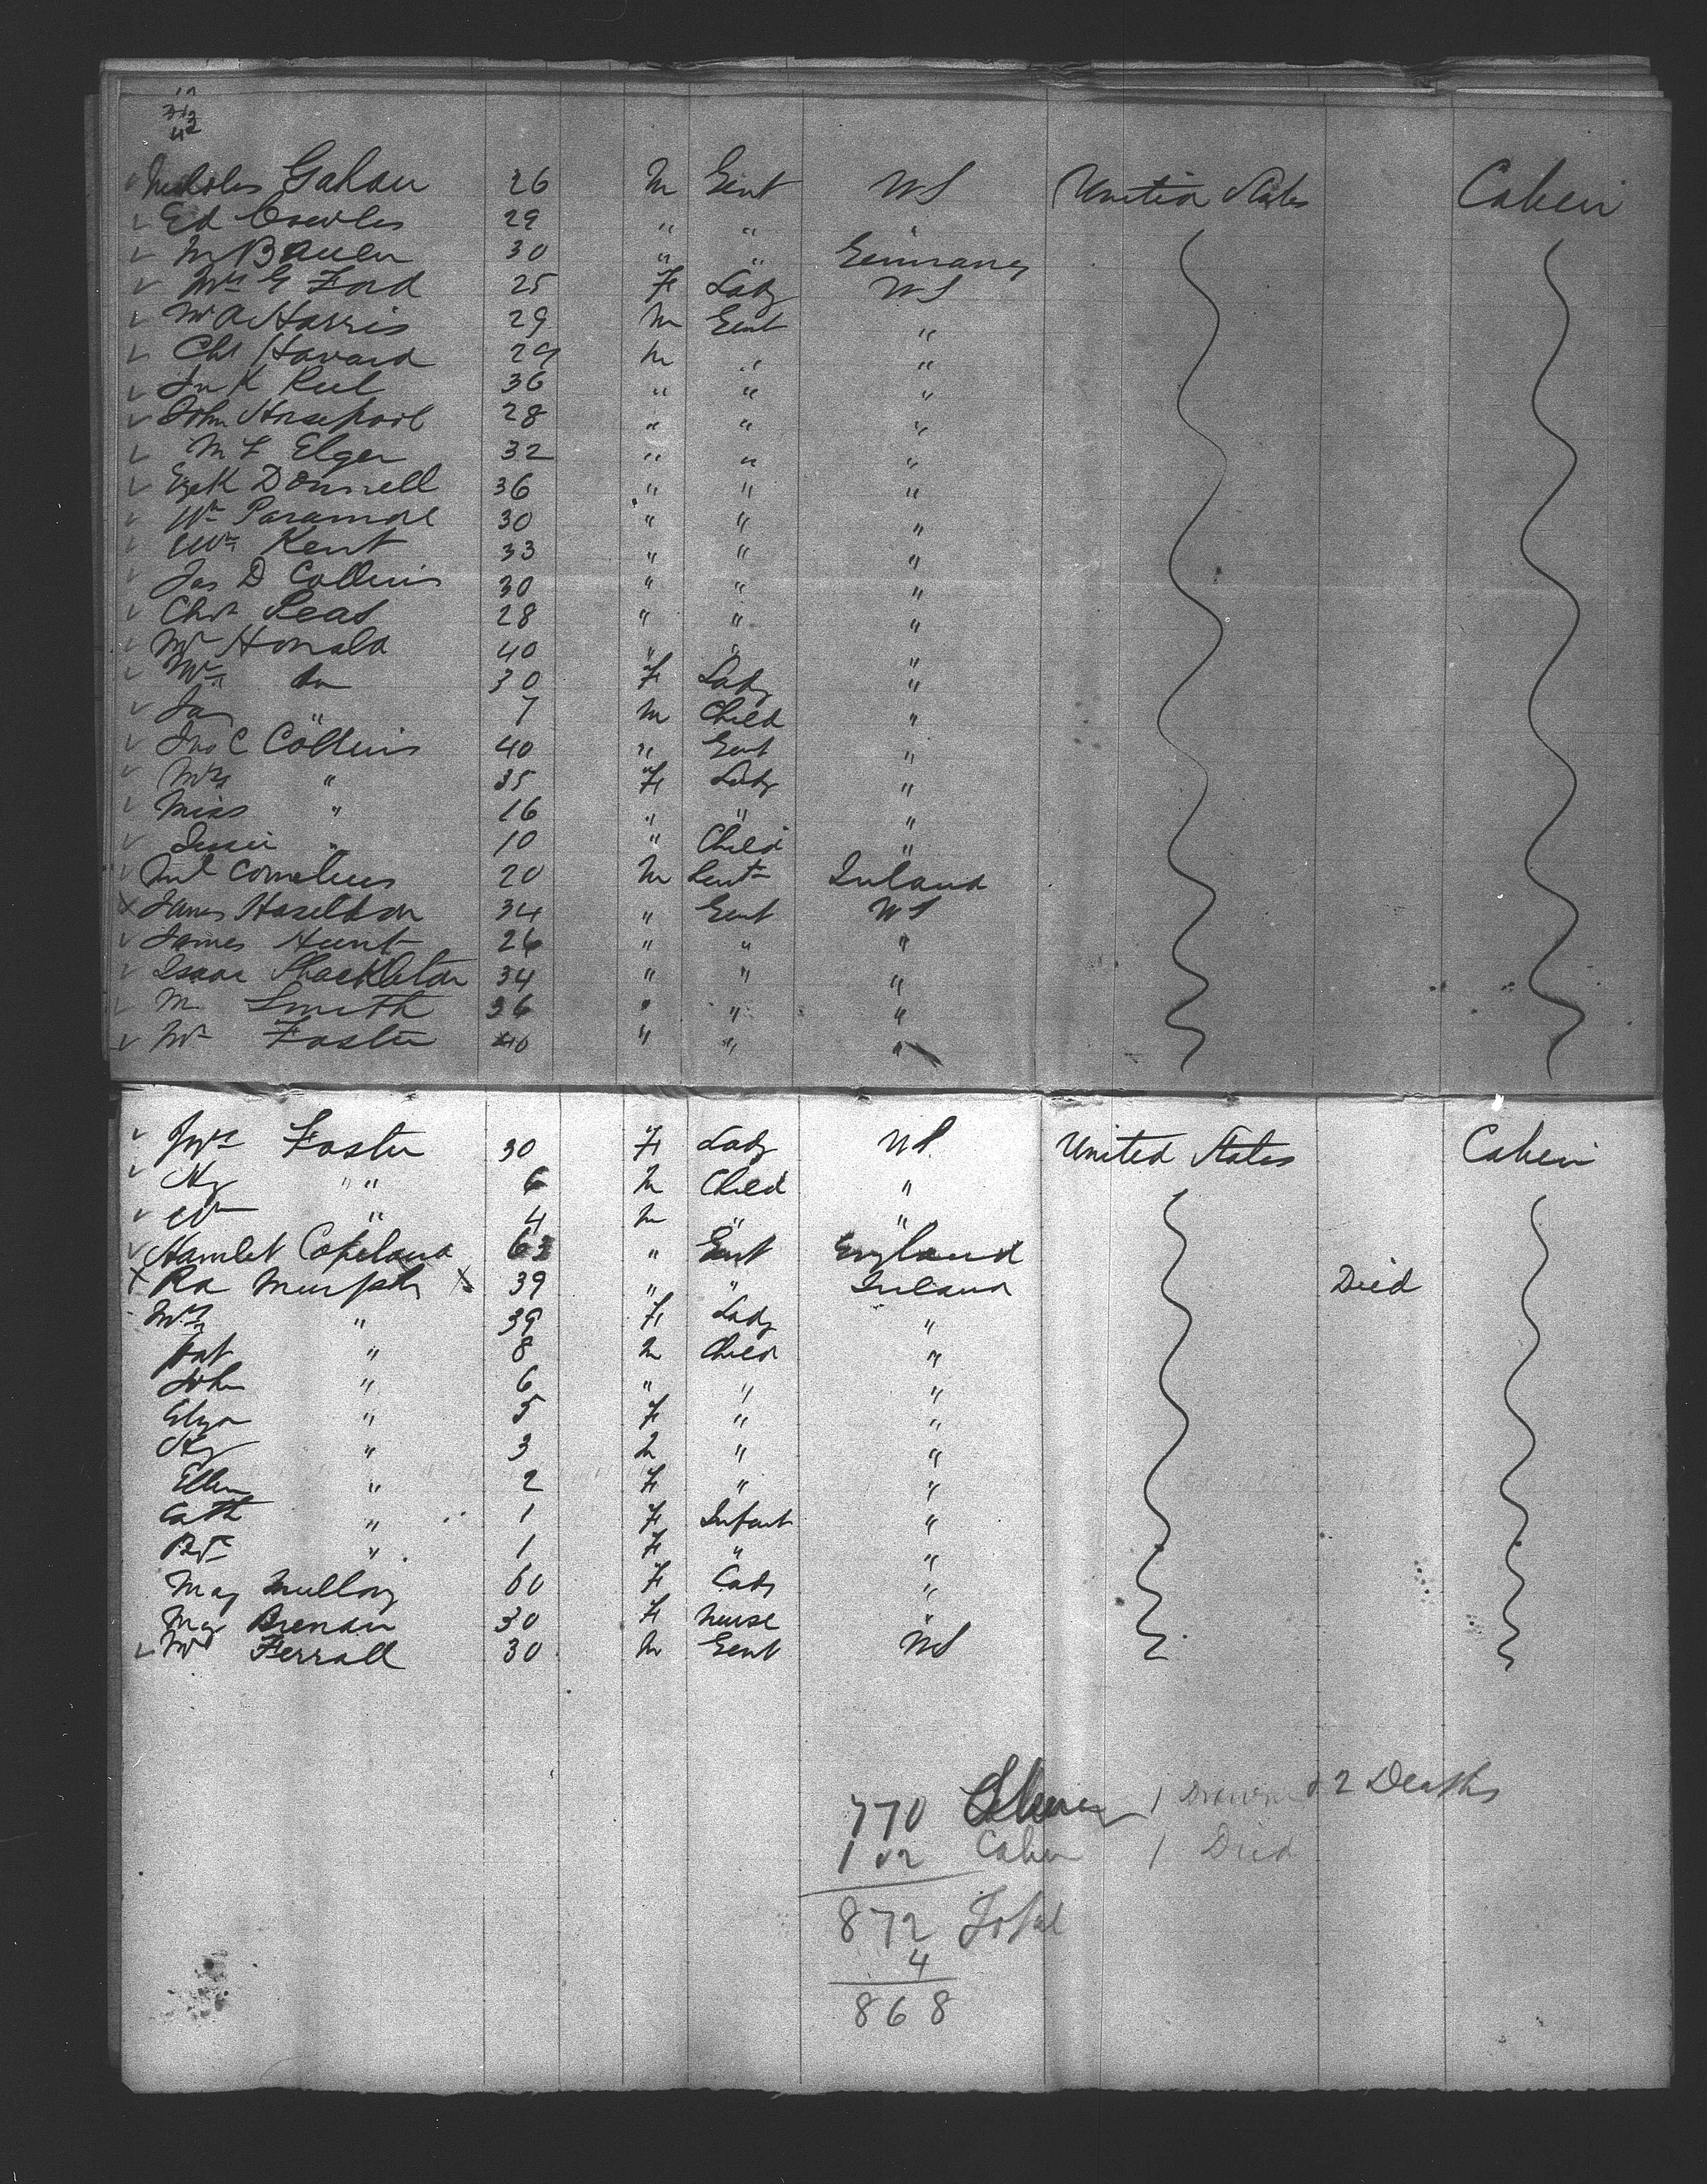 Nicholas Gahan 26 M Gent US United States Cabin
Ed Cowles 29 " "
M Bauer 30 " " Germany
Mrs G Ford 25 F Lady US
W A Harris 29 M Gent "
Chs Havard 29 M " "
Jn K Reel 36 " " "
John Horsepool 28 " " "
M F Elger 32 " " "
Ezek Donnell 36 " " "
Wm Paramore 30 " " "
Wm Kent 33 " " "
Jas D Collins 30 " " "
Chs Seas 28 " " "
Mr Honald 40 " " "
Mrs Do 30 F Lady "
Jas " 7 M Child "
Jno C Collins 40 " Gent "
Mrs " 35 F Lady "
Miss " 16 " " "
Jessie " 10 " Child "
Cornelius 20 M Gent Ireland
James Haseltson 34 " Gent US
James Hunt 26 " " "
Isaac Shackleton 34 " " "
M Smith 36 " " "
Mr Foster 40 " " "
Mrs Foster 30 F Lady US United States Cabin
Hy " " 6 M Child "
Wm " 4 M " "
Hamlet Copeland 63 " Gent England
Ra Murphy 39 " " Ireland Died
Mrs " 39 F Lady "
Pat " 8 M Child "
John " 6 " " "
Eliza " 5 F " "
Hy " 3 M " "
Ellen " 2 F " "
Cath " 1 F Infant "
Bt " 1 F " "
May Mulloy 60 F Lady "
May Brenan 30 F Nurse "
Mr Ferrall 30 M Gent US
770 1 Drown & 2 Deaths
102 Cabin 1 Died
872 Total
4
868